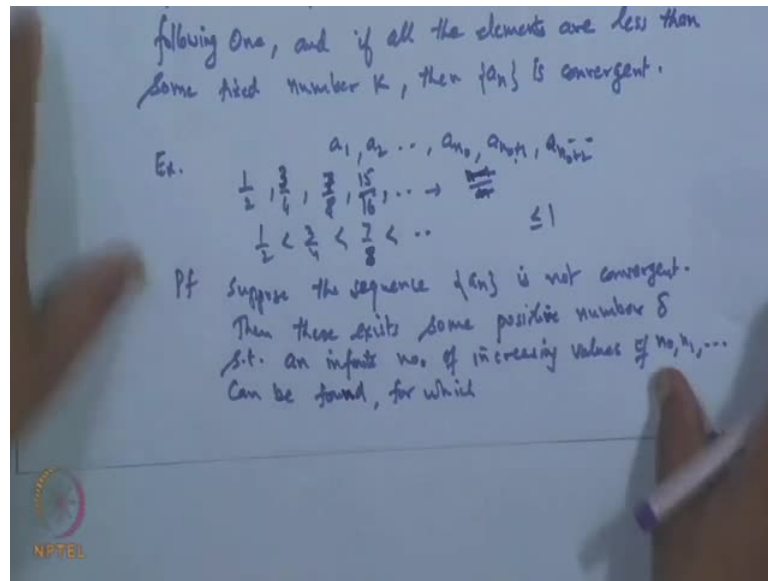 following One, and if all the elements are less than
Some fixed number K, then {an} is convergent.
a1, a2 .., an0, an0+1, an0+2 --
Ex.
1/2, 3/4, 7/8, 15/16, .. →
1/2 < 3/4 < 7/8 < .. ≤ 1
Pf Suppose the sequence {an} is not convergent.
Then there exists some positive number δ
s.t. an infinite no. of increasing values of n0, n1, ...
Can be found, for which
NPTEL